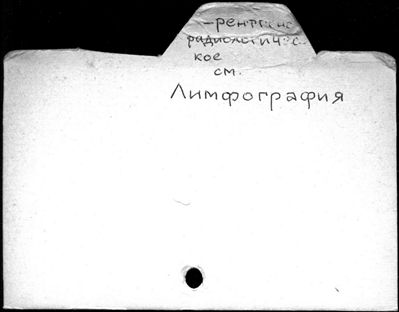 – рентгено
радиологичес-
кое
см.
Лимфография